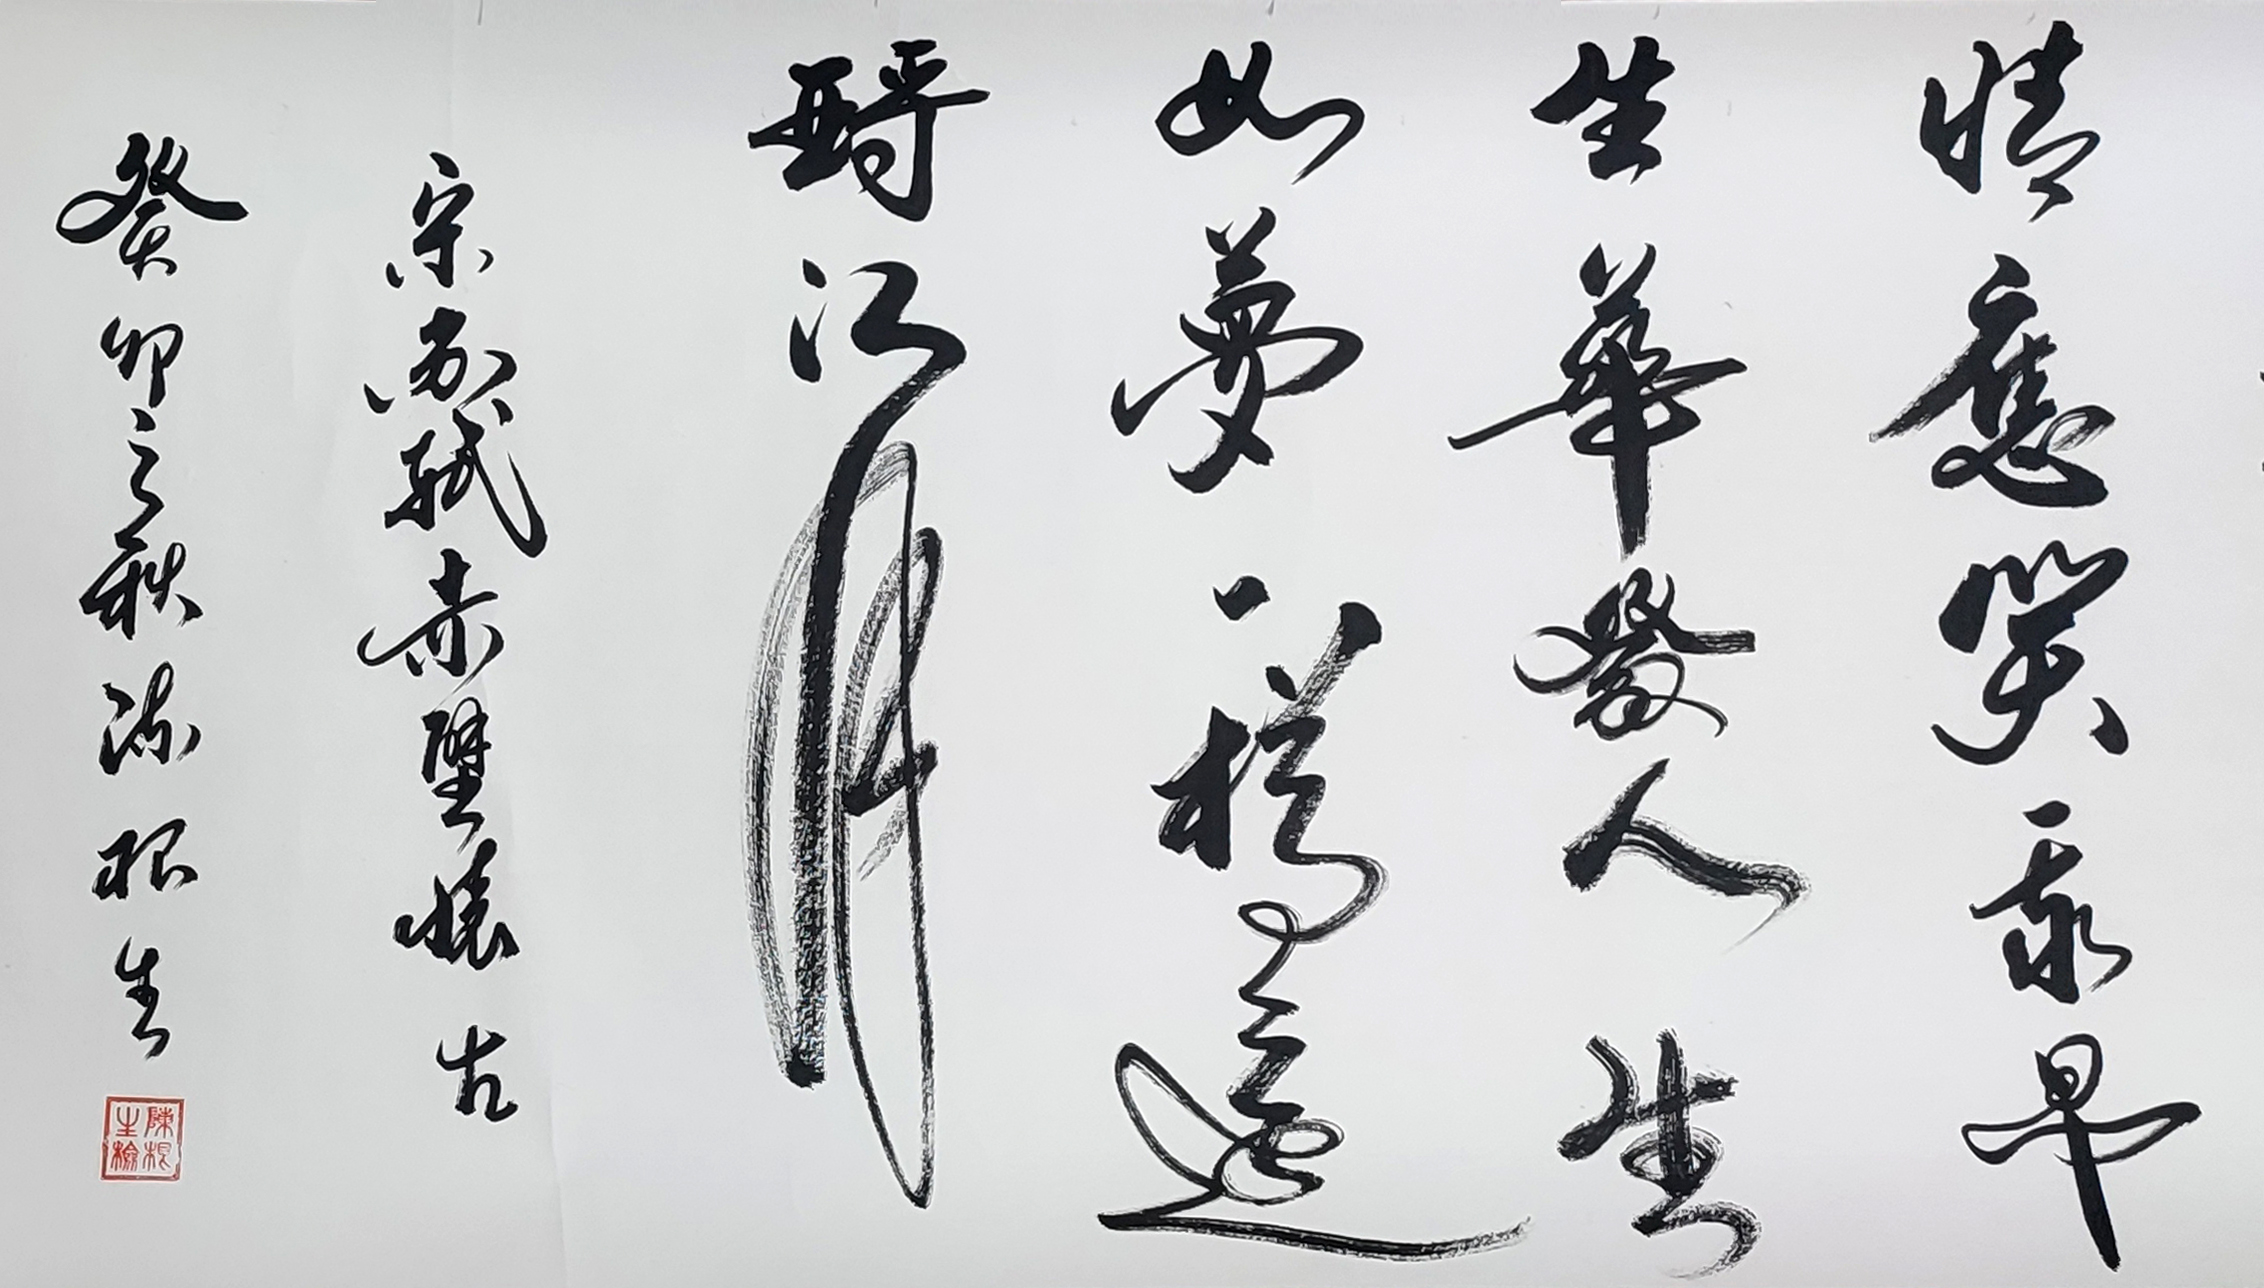 情應笑我早
生華發人生
如夢一樽還
酹江月
宋蘇軾赤壁懷古
癸卯之秋陳根生
陳根生